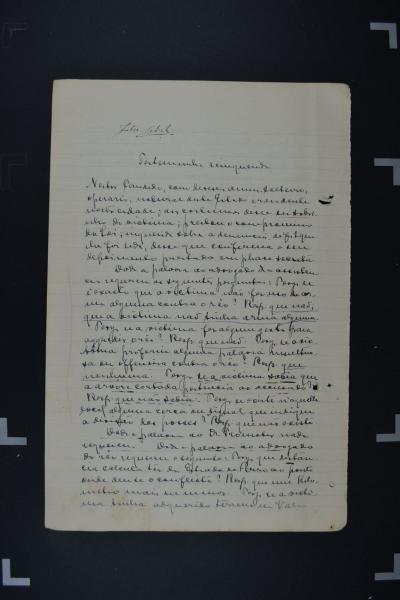 Testemunha
Nestor, com annos, solteiro,
operario, natural deste Estado e residente
nesta cidade; aos costumes disse
da victima; prestou o compromisso
da lei; inquirida sobre a denuncia,
foi lida, disse que confirma o seu
depoimento prestado em phase
Dada a palavra ao advogado
os seguintes perguntas: Perg. se
é exacto que a victima não
alguma contra o réo? Resp. que não,
que a victima não tinha arma alguma.
Perg. se a victima fez algum gesto para
aggredir o réo? Resp. que não. Perg. se a vic-
tima proferiu alguma palavra insultuo-
sa ou offensiva contra o réo? Resp. que
nenhuma. Perg. se a victima sabia que
a arvore cortada pertencia ao accusado?
Resp. que não sabia. Perg. se existe naquelle
local alguma cerca ou signal que indique
a divisão das posses? Resp. que não existe
Dada a palavra ao Dr. Promotor nada
requereu. Dada a palavra ao advogado
do réo requereu o seguinte: Perg. que distan-
cia calcula ter da Estrada de Ferro ao ponto
onde deu-se o conflicto? Resp. que um kilo-
metro mais ou menos. Perg. se a victi-
ma tinha adquirido